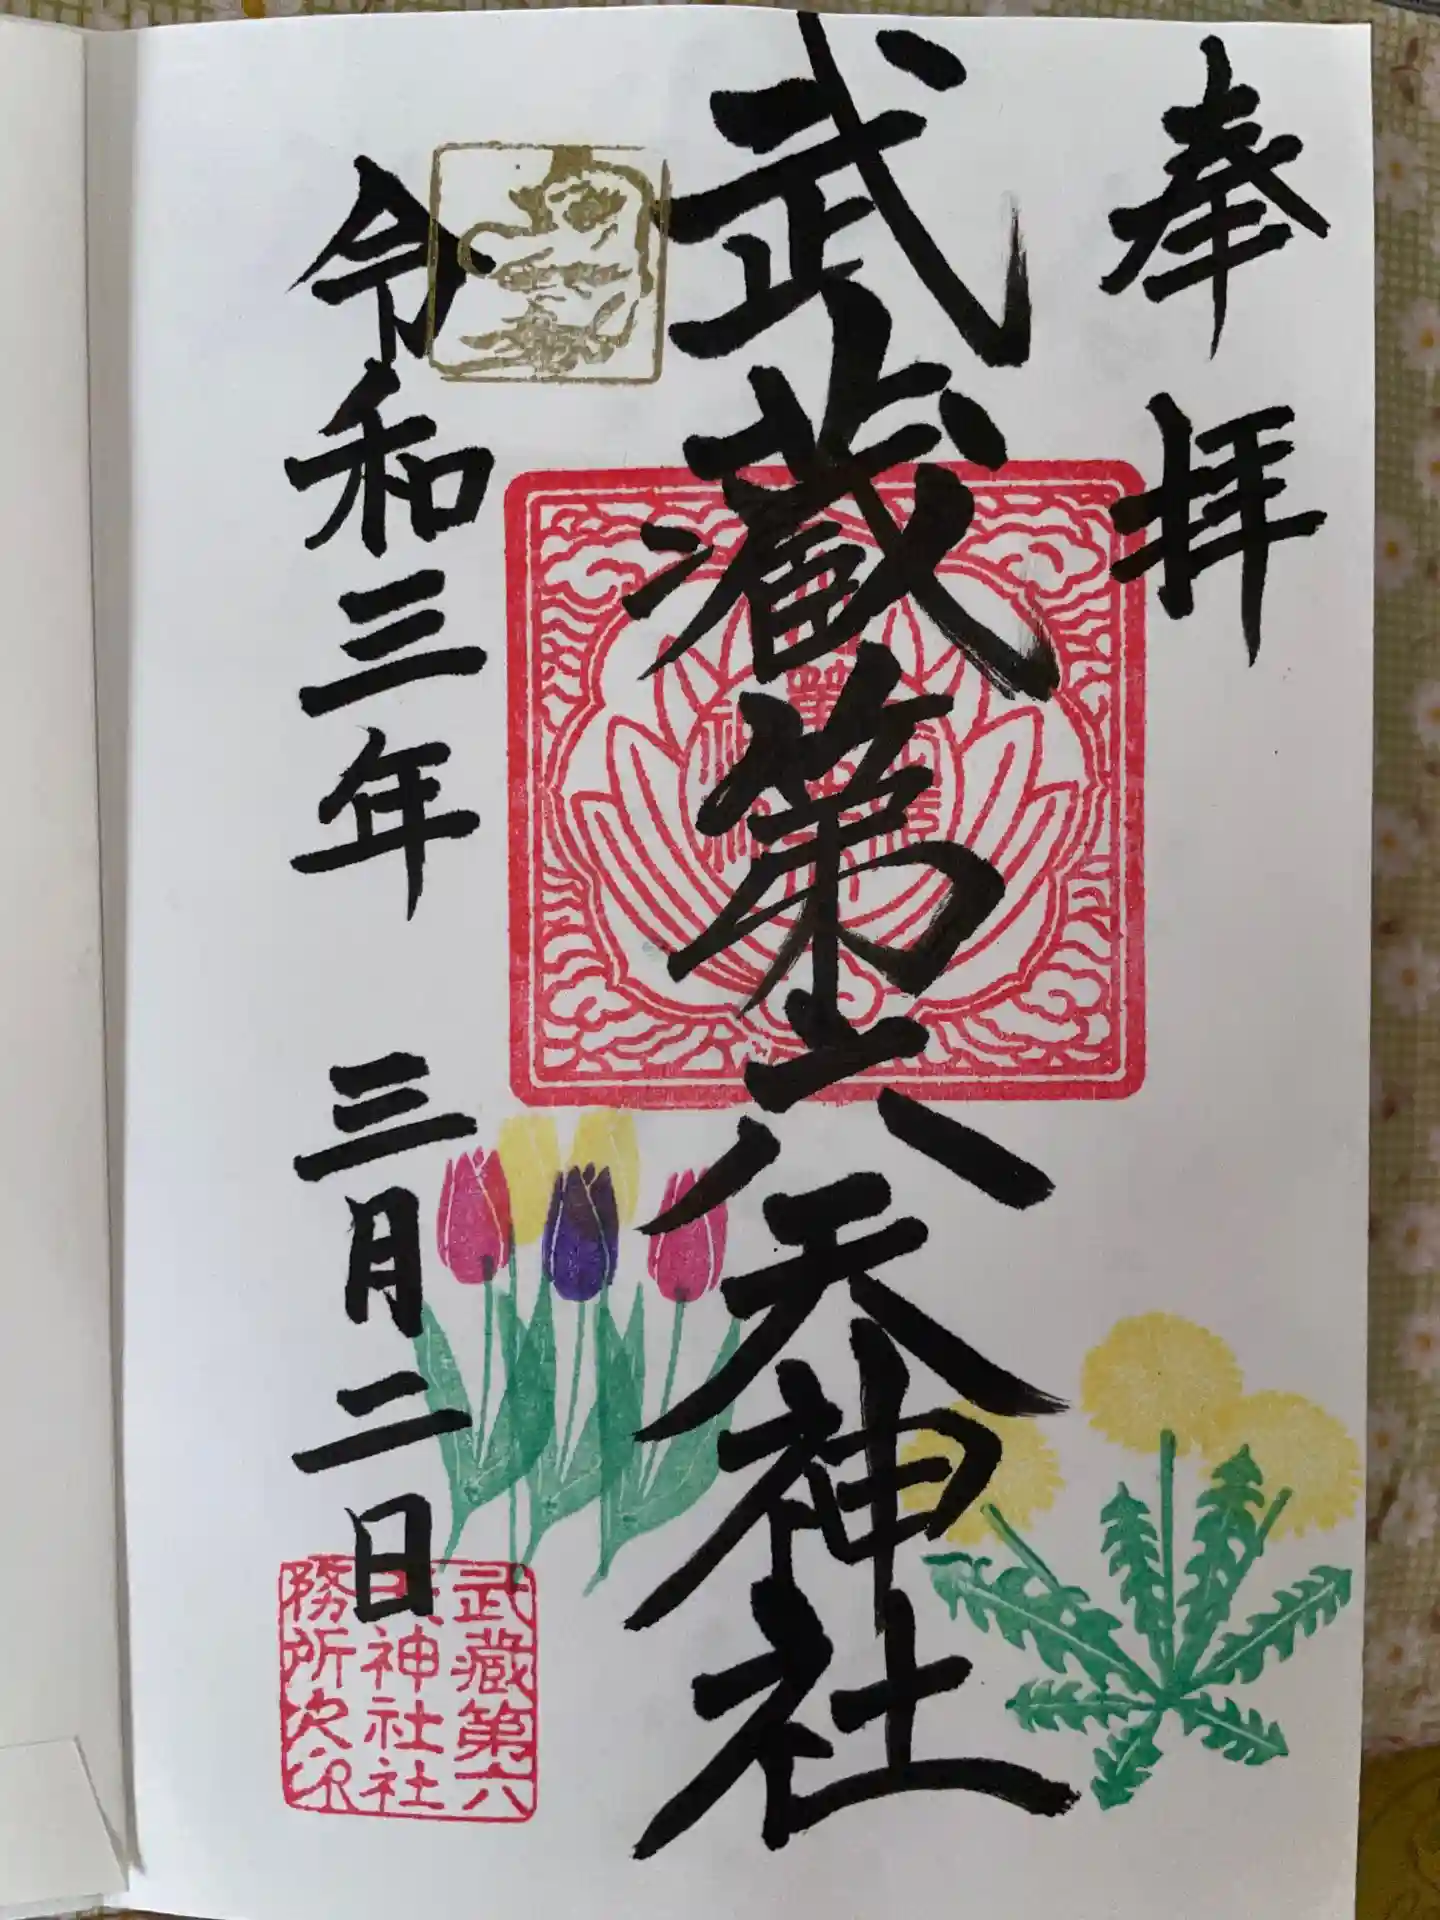 奉拝
武蔵第六天神社
令和三年 三月二日
武蔵第六
神社社
務所